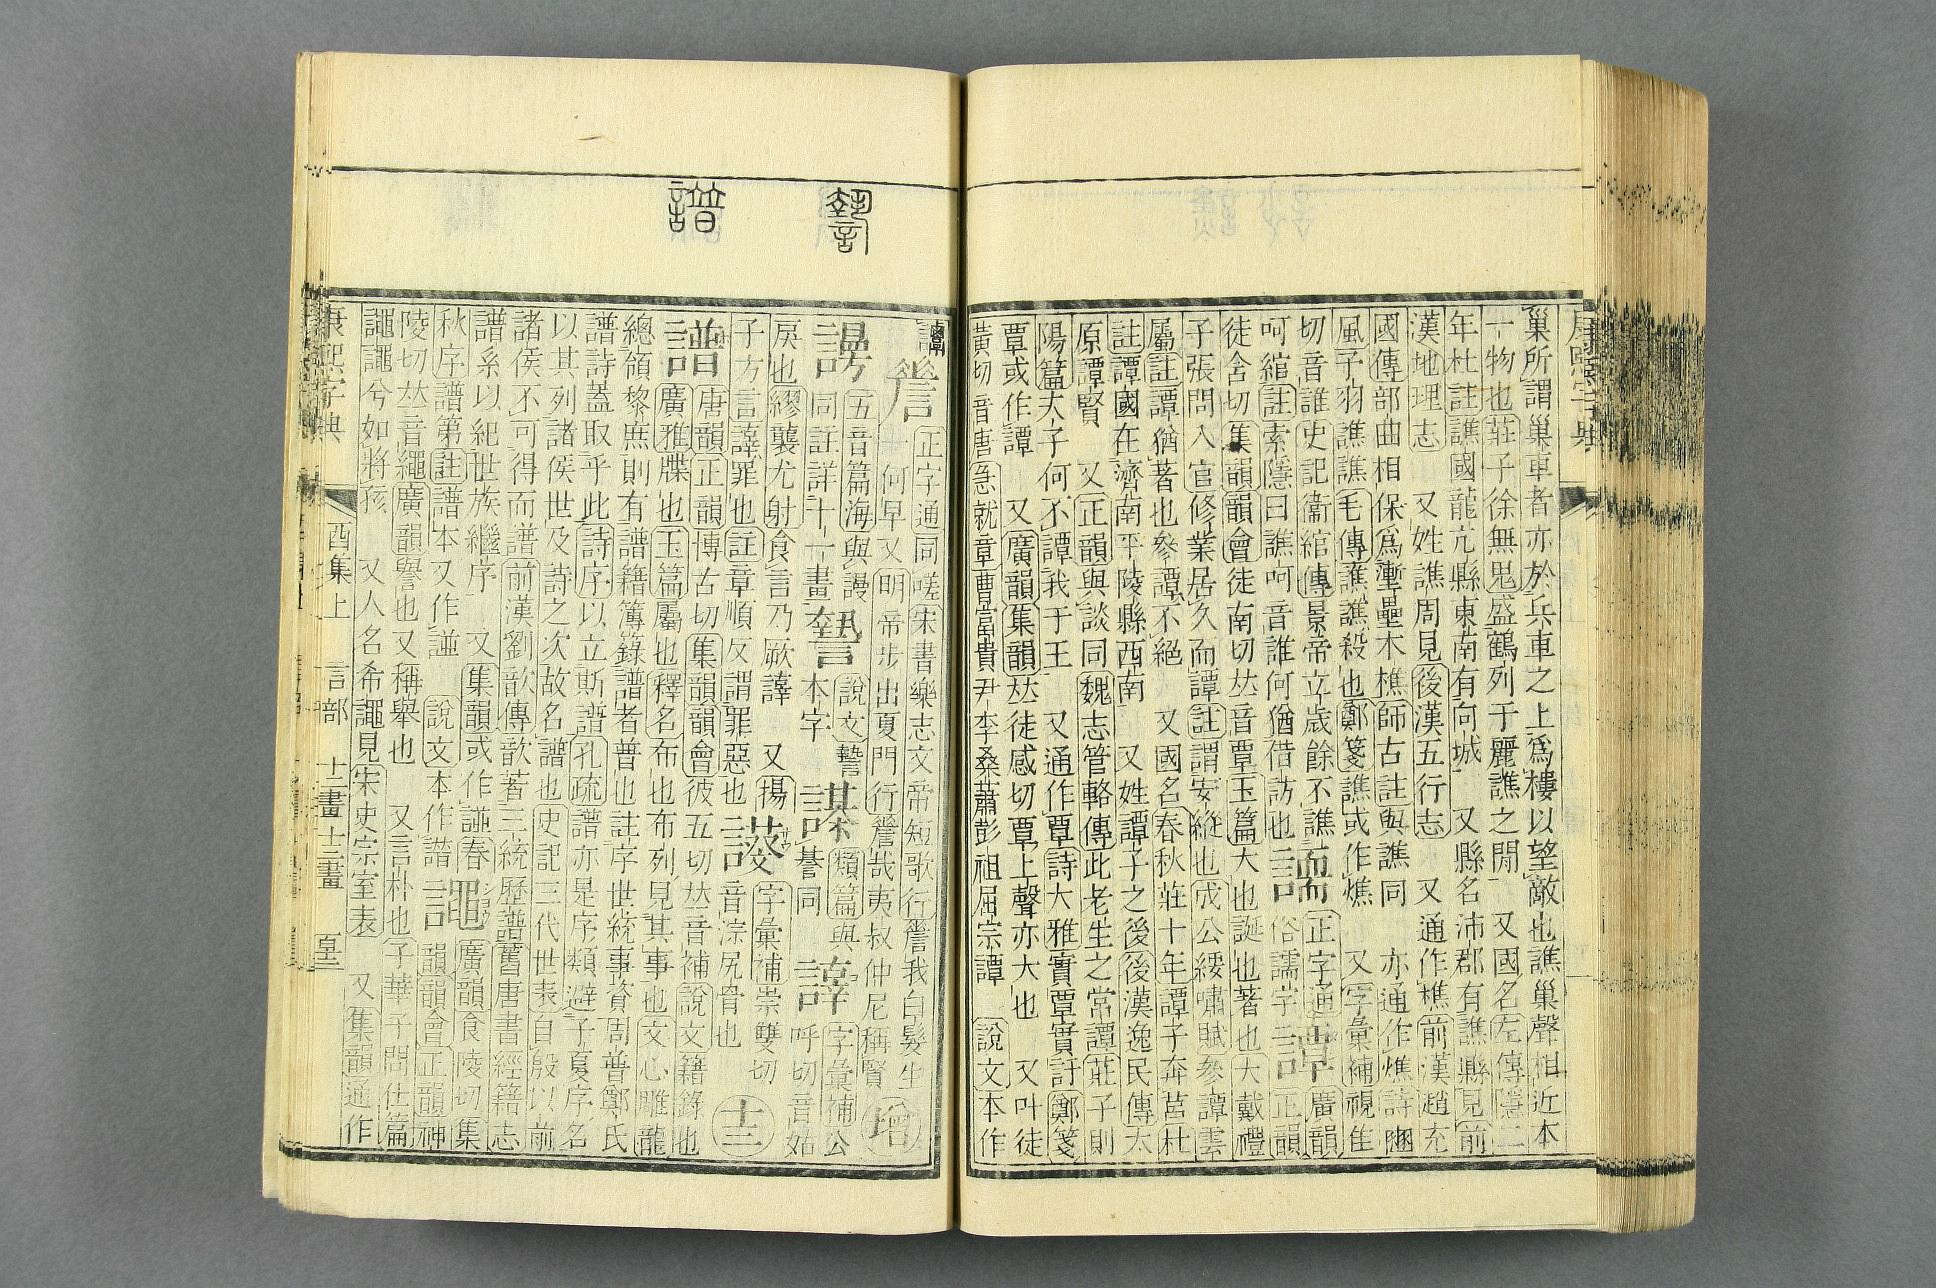 康熙字典
巢所謂巢車者亦於兵車之上爲樓以望敵也譙巢聲相近本
一物也莊子徐無鬼盛鶴列于麗譙之閒 又國名左傳隱二
年杜註譙國龍亢縣東南有向城 又縣名沛郡有譙縣見前
漢地理志 又姓譙周見後漢五行志 又通作樵前漢趙充
國傳部曲相保爲塹壘木樵師古註與譙同 亦通作燋詩豳
風予羽譙譙毛傳譙譙殺也鄭箋譙或作燋 又字彙補視隹
切音誰史記衞綰傳景帝立歲餘不譙 正字通 廣韻
呵綰註索隱曰譙呵音誰何猶借訪也 俗譳字 譚 正韻
徒含切集韻韻會徒南切𠀤音覃玉篇大也誕也著也大戴禮
子張問入官修業居久而譚註謂安縱也成公綏嘯賦參譚雲
屬註譚猶著也參譚不絕 又國名春秋莊十年譚子奔莒杜
註譚國在濟南平陵縣西南 又姓譚子之後後漢逸民傳太
原譚賢 又正韻與談同魏志管輅傳此老生之常譚莊子則
陽篇夫子何不譚我于王 又通作覃詩大雅實覃實訏鄭箋
覃或作譚 又廣韻集韻𠀤徒感切覃上聲亦大也 又叶徒
黃切音唐急就章曹富貴尹李桑蕭彭祖屈宗譚 說文本作
謷
譜
𧮓 正字通同嗟宋書樂志文帝短歌行𧮓我白髮生
何早又明帝步出夏門行𧮓哉夷叔仲尼稱賢 增
五音篇海與謾 說文 類篇與 字彙補公
謾 同註詳十一畫 本字 諅 謩同 呼切音始
戾也繆襲尤射食言乃厥 又揚 字彙補崇雙切
子方言 罪也註章順反謂罪惡也 音淙尻骨也 十三
譜 唐韻正韻博古切集韻韻會彼五切𠀤音補說文籍錄也
廣雅牒也玉篇屬也釋名布也布列見其事也文心雕龍
總領黎庶則有譜籍簿錄譜者普也註序世統事資周普鄭氏
譜詩蓋取乎此詩序以立斯譜孔疏譜亦是序類避子夏序名
以其列諸侯世及詩之次故名譜也史記三代世表自殷以前
諸侯不可得而譜前漢劉歆傳歆著三統歷譜舊唐書經籍志
譜系以紀世族繼序 又集韻或作諩春 廣韻食陵切集
秋序譜第註譜本又作諩 說文本作譜 譝 韻韻會正韻神
陵切𠀤音繩廣韻譽也又稱舉也 又言朴也子華子問仕篇
譝譝兮如將孩 又人名希譝見宋史宗室表 又集韻通作
康熙字典 酉集上 言部 十二畫十三畫